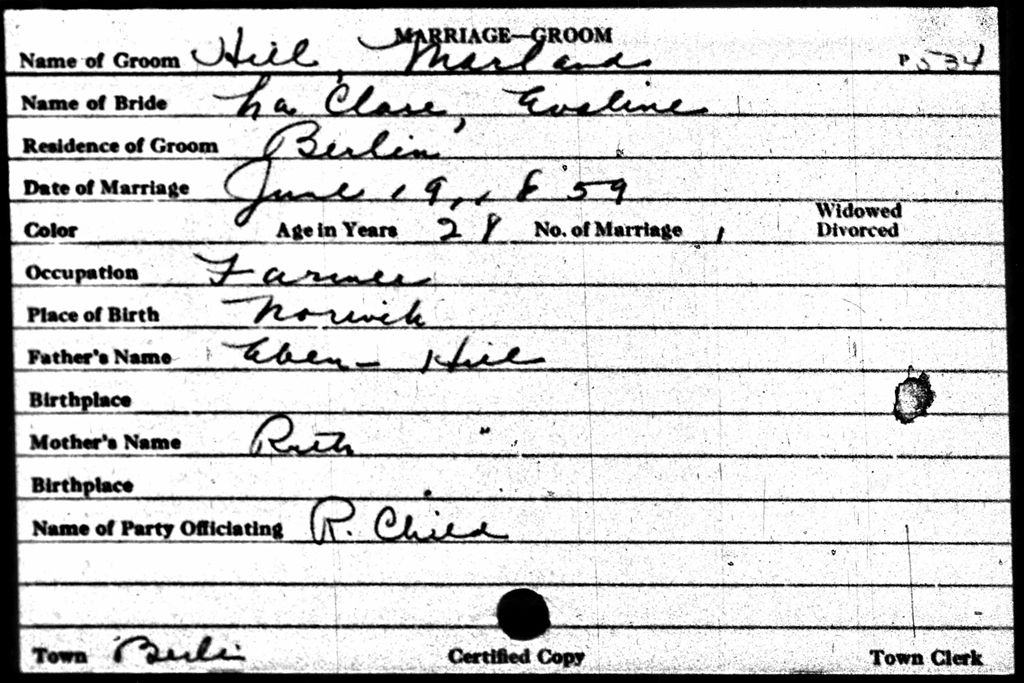 MARRIAGE—GROOM
Name of Groom Hill, Marland P 534
Name of Bride La Clare, Eveline
Residence of Groom Berlin
Date of Marriage June 19, 1859
Color Age in Years 28 No. of Marriage 1 Widowed Divorced
Occupation Farmer
Place of Birth Norwich
Father's Name Eben Hill
Birthplace
Mother's Name Ruth "
Birthplace
Name of Party Officiating R. Child
Town Berlin Certified Copy Town Clerk